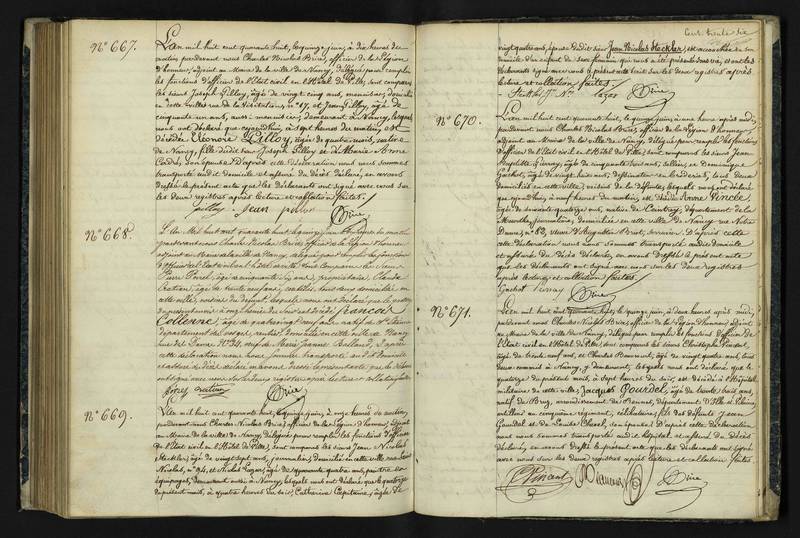 N.° 667.
L'an mil huit cent quarante huit, le quinze juin, à dix heures du
matin, pardevant nous Charles Nicolas Brice, officier de la Légion
d'honneur, adjoint au Maire de la ville de Nancy, délégué pour remplir
les fonctions d'officier de l'Etat civil en l'Hôtel de Ville, sont comparus
les sieurs Joseph Pilloy, âgé de vingt cinq ans, menuisier, domicilié
en cette ville, rue de la n.° 17, et Jean Pilloy, âgé de
cinquante un ans, aussi menuisier, demeurant à Nancy, lesquels
nous ont déclaré que cejourd'hui, à sept heures du matin, est
décédée Eléonore Pilloy, âgée de quatre mois, native
de Nancy, fille dudit sieur Joseph Pilloy et de Marie Anne
son épouse. D'après cette déclaration nous nous sommes
transporté audit domicile et assuré du décès déclaré, en avons
dressé le présent acte que les déclarants ont signé avec nous sur
les deux registres après lecture et collation faites.
pilloy Jean pilloy Brice
N.° 668.
L'An Mil huit cent quarante huit, le quinze juin, heures du matin
pardevant nous Charles Nicolas Brice officier de la Légion d'honneur
adjoint au Maire de la ville de Nancy, délégué pour remplir les fonctions
d'officier de l'Etat civil en l'hôtel de ville, sont comparus les sieurs
Pierre âgé de cinquante ans, propriétaire, Claude
âgé de trente neuf ans, tous deux domiciliés en
cette ville, voisins du défunt, lesquels nous ont déclaré que le quatorze
du présent mois, à heures du soir est décédé françois
Collenne, âgé de quatre vingt neuf ans, natif de St
département des vosges, rentier, domicilié en cette ville de Nancy
rue des Dames N.° 34, veuf de Marie Jeanne Balland, D'après
cette déclaration nous nous sommes transporté audit domicile
et assuré du décès déclaré en avons dressé le présent acte que les déclarants
ont signé avec nous sur les deux registres après lecture et collation faites
Brice
N.° 669.
L'an mil huit cent quarante huit, le quinze juin, à onze heures du matin,
pardevant nous Charles Nicolas Brice, officier de la Légion d'honneur, adjoint
au Maire de la ville de Nancy, délégué pour remplir les fonctions d'officier
de l'Etat civil en l'Hôtel de Ville, sont comparus les sieurs Jean Nicolas
Steckler, âgé de vingt sept ans, journalier, domicilié en cette ville rue Saint
Nicolas, n.° 94, et Nicolas Lazar, âgé de quarante quatre ans, peintre en
équipages, demeurant aussi à Nancy, lesquels nous ont déclaré que le quatorze
du présent mois, à quatre heures du soir, Catherine Capitaine, âgée de
Cent trente six
vingt quatre ans, épouse dudit sieur Jean Nicolas Steckler, est accouchée en son
domicile d'un enfant du sexe féminin qui nous a été présenté sans vie, et ont les
déclarants signé avec nous le présent acte écrit sur les deux registres après
lecture et collation faites.
Lazar Brice
N.° 670.
L'an mil huit cent quarante huit, le quinze juin, à une heure après midi,
pardevant nous Charles Nicolas Brice, officier de la Légion d'honneur,
adjoint au Maire de la ville de Nancy, délégué pour remplir les fonctions
d'officier de l'Etat civil en l'Hôtel de Ville, sont comparus les sieurs Jean
Baptiste âgé de cinquante trois ans, et Dominique
Gachot, âgé de vingt huit ans, dessinateur en broderies, tous deux
domiciliés en cette ville, voisins de la défunte, lesquels nous ont déclaré
que cejourd'hui, à neuf heures du matin, est décédée Anne Pencle
âgée de soixante quatorze ans, native de département de la
Meurthe, journalière, domiciliée en cette ville de Nancy rue Notre
Dame, n.° 83, veuve d'Augustin serrurier. D'après cette
cette déclaration nous nous sommes transporté audit domicile
et assuré du décès déclaré, en avons dressé le présent acte
que les déclarants ont signé avec nous sur les deux registres
après lecture et collation faites.
Gachot Brice
N.° 671.
L'an mil huit cent quarante huit, le quinze juin, à deux heures après midi,
pardevant nous Charles Nicolas Brice, officier de la Légion d'honneur, adjoint
au Maire de la ville de Nancy, délégué pour remplir les fonctions d'officier de
l'Etat civil en l'Hôtel de Ville, sont comparus les sieurs Christophe Pincent,
âgé de trente neuf ans, et Charles âgé de vingt quatre ans, tous
deux commis à Nancy, y demeurant, lesquels nous ont déclaré que le
quatorze du présent mois, à sept heures du soir, est décédé à l'Hôpital
militaire de cette ville, Jacques Gourdel, âgé de trente trois ans,
natif de Brie, arrondissement de Rennes, département d'Ille et Vilaine,
artilleur au cinquième régiment, célibataire, fils des défunts Jean
Gourdel et de Louise son épouse. D'après cette déclaration
nous nous sommes transporté audit hôpital et assuré du décès
déclaré, en avons dressé le présent acte que les déclarants ont signé
avec nous sur les deux registres après lecture et collation faites.
C. Pincent Brice